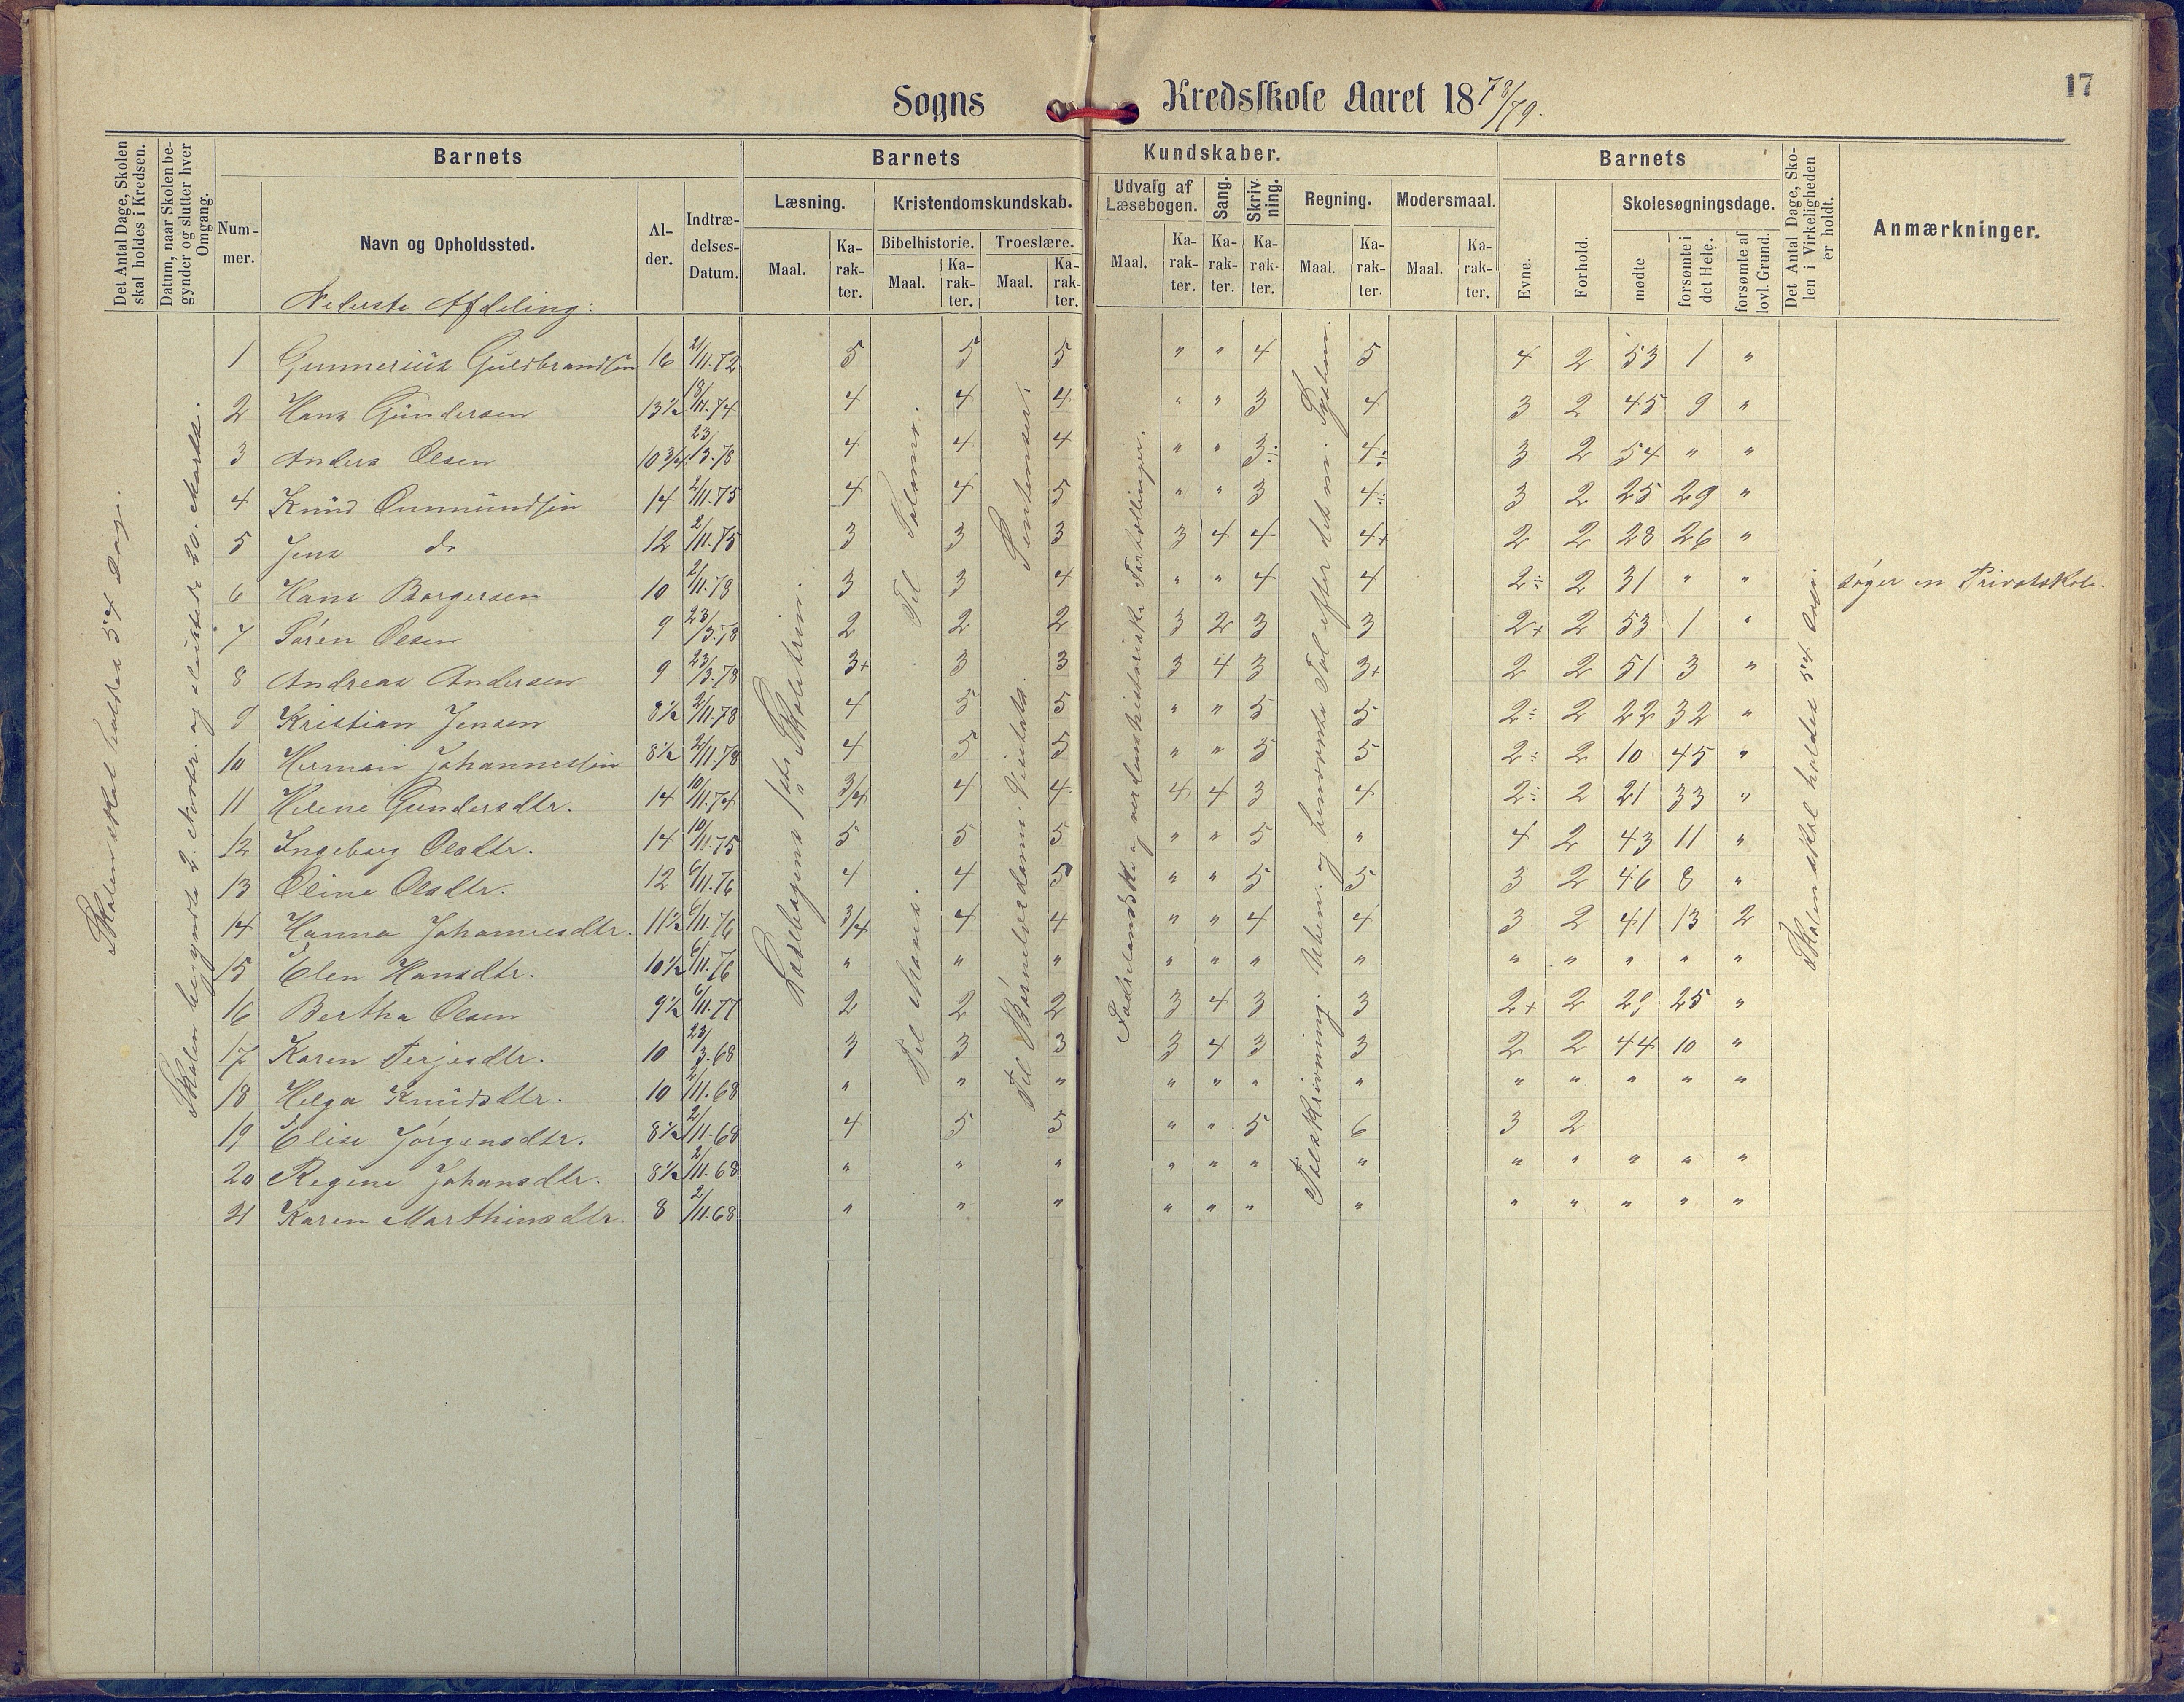 17
Sogns Kredsskole Aaret 1878/79.
Det Antal Dage, Skolen skal holdes i Kredsen.
Datum, naar Skolen begynder og slutter hver Omgang.
Barnets
Nummer.
Navn og Opholdssted.
Alder.
Indtrædelses-Datum.
Barnets Kundskaber.
Læsning.
Maal. Karakter.
Kristendomskundskab.
Bibelhistorie. Troeslære.
Maal. Karakter. Maal. Karakter.
Udvalg af Læsebogen.
Maal. Karakter.
Sang. Karakter.
Skrivning. Karakter.
Regning.
Maal. Karakter.
Modersmaal.
Maal. Karakter.
Barnets
Evne. Forhold.
Skolesøgningsdage.
mødte forsømte i det Hele. forsømte af lovl. Grund.
Det Antal Dage, Skolen i Virkeligheden er holdt.
Anmærkninger.
Nederste Afdeling:
Skolen skal holdes 54 Dage.
Skolen begyndte 2. Novbr. og sluttede 20. Marts.
Læsebogens 1ste Skoletrin.
Til Moses. Til Salomo.
Til Børnelærdoms Visebok. Sentenser.
Fædrelandske og verdenshistoriske Fortællinger.
Talskrivning. Uben. og benævnte Tal efter det ny System.
Skolen skal holdes 54 Dage.
1 Gunnerius Guldbrandsen 16 2/11.72 5 5 5 " " 4 5 4 2 53 1 "
2 Hans Gundersen 13½ 18/11.74 4 4 4 " " 3 4 3 2 45 9 "
3 Anders Olsen 10¾ 23/3.78 4 4 4 " " 3÷ 4÷ 3 2 54 " "
4 Knud Ommundsen 14 2/11.75 4 4 5 " " 3 4÷ 3 2 25 29 "
5 Jens do 12 2/11.75 3 3 3 3 4 4 4+ 2 2 28 26 "
6 Hans Borgersen 10 2/11.78 3 3 4 " " 4 4 2÷ 2 31 " " søger en Privatskole.
7 Søren Olsen 9 23/3.78 2 2 2 3 2 3 3 2+ 2 53 1 "
8 Andreas Andersen 9 23/3.78 3+ 3 3 3 4 3 3+ 2 2 51 3 "
9 Kristian Jensen 8½ 2/11.78 4 5 5 " " 5 5 2÷ 2 22 32 "
10 Herman Johannessen 8½ 2/11.78 4 5 5 " " 5 5 2÷ 2 10 45 "
11 Helene Gundersdtr. 14 10/11.74 3/4 4 4 4 4 3 4 2÷ 2 21 33 "
12 Ingeborg Olsdtr. 14 10/11.75 5 5 5 " " 5 " 4 2 43 11 "
13 Oline Olsdtr. 12 6/11.76 4 4 5 " " 5 5 3 2 46 8 "
14 Hanna Johannesdtr. 11½ 6/11.76 3/4 4 4 " " 4 4 3 2 41 13 2
15 Elen Hansdtr. 10½ 6/11.76 " " " " " " " " " " " "
16 Bertha Olsen 9½ 6/11.77 2 2 2 3 4 3 3 2+ 2 29 25 "
17 Karen Terjesdtr. 10 23/3.68 3 3 3 3 4 3 3 2 2 44 10 "
18 Helga Knudsdtr. 10 2/11.68 " " " " " " " " " " " "
19 Elise Jørgensdtr. 8½ 2/11.68 4 5 5 " " 5 6 3 2
20 Regine Johansdtr. 8½ 2/11.68 " " " " " " " " " " " "
21 Karen Marthinsdtr. 8 2/11.68 " " " " " " " " " " " "